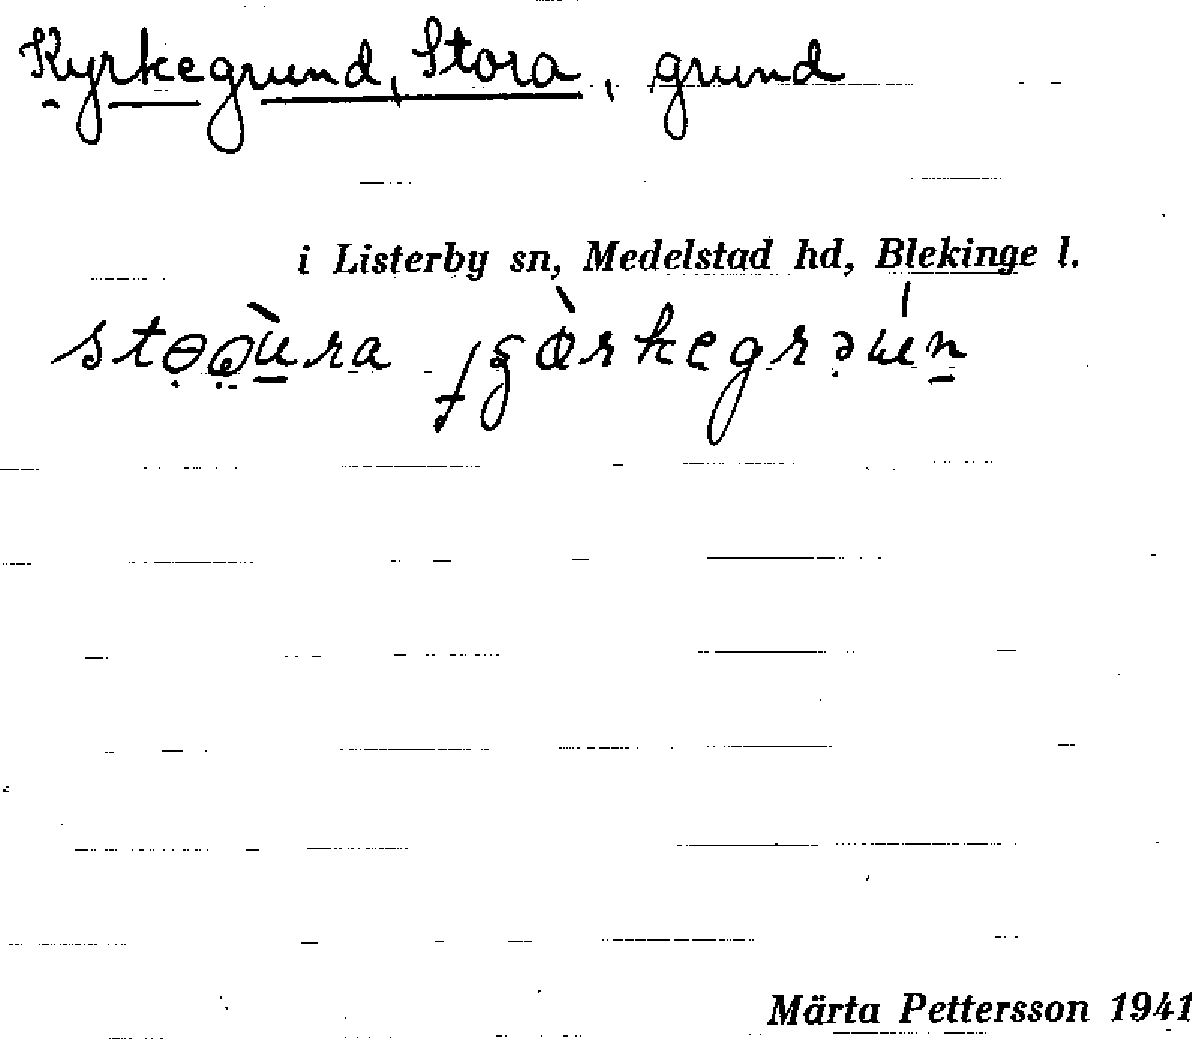 Kyrkegrund, Stora, grund
i Listerby sn, Medelstad hd, Blekinge l.
Märta Pettersson 1941